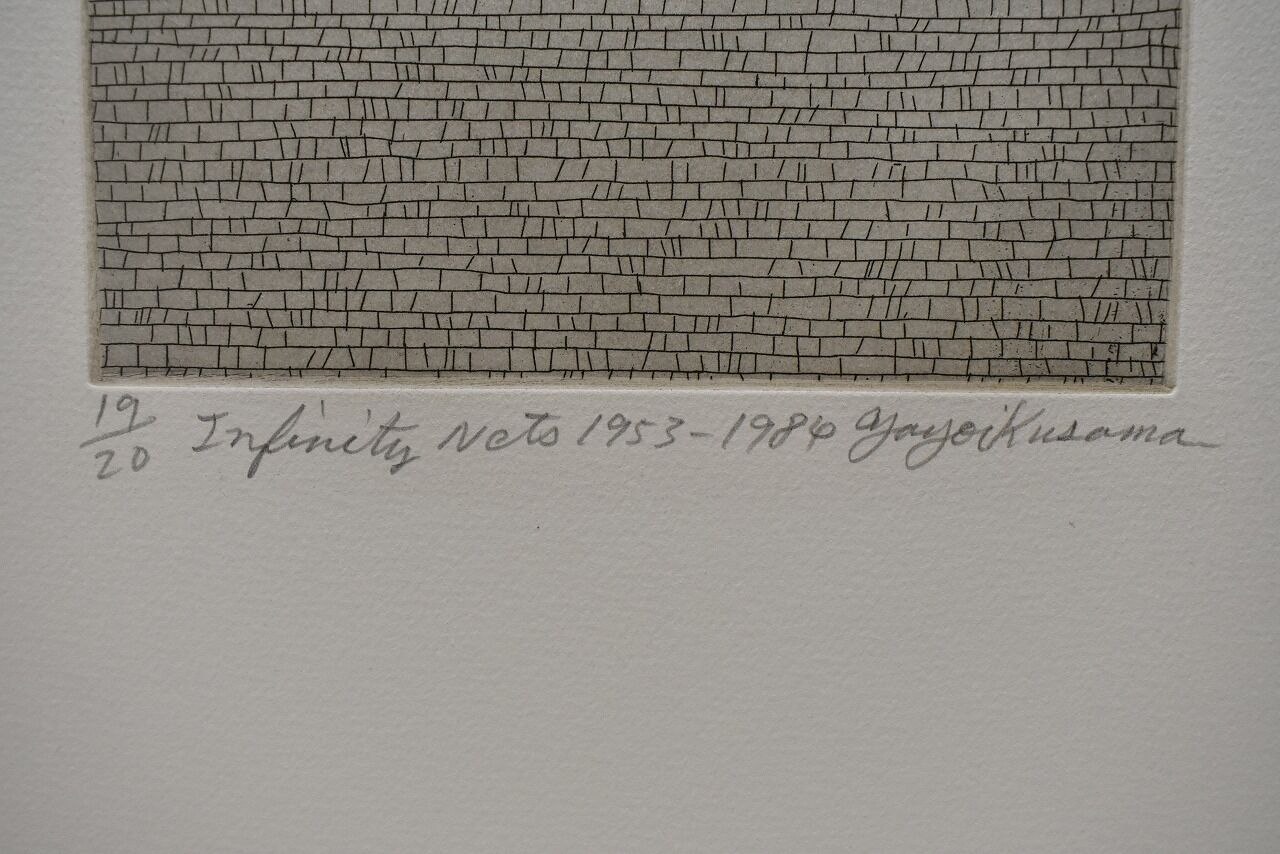 19/20 Infinity Nets 1953-1984 Yayoi Kusama